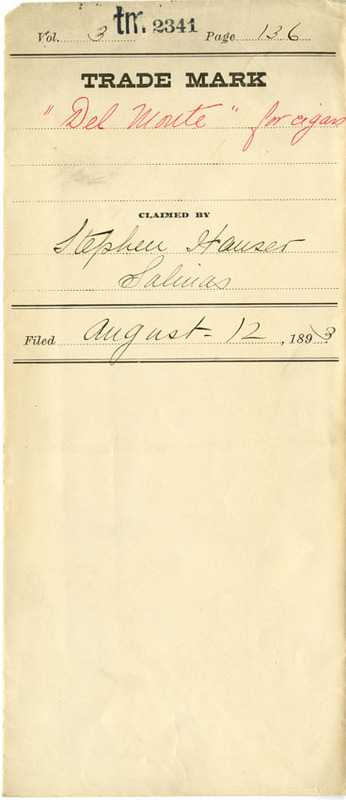 Vol. 3 tm. 2341 Page 136
TRADE MARK
"Del Monte" for cigars
CLAIMED BY
Stephen Hauser
Salinas
Filed August 12, 1893